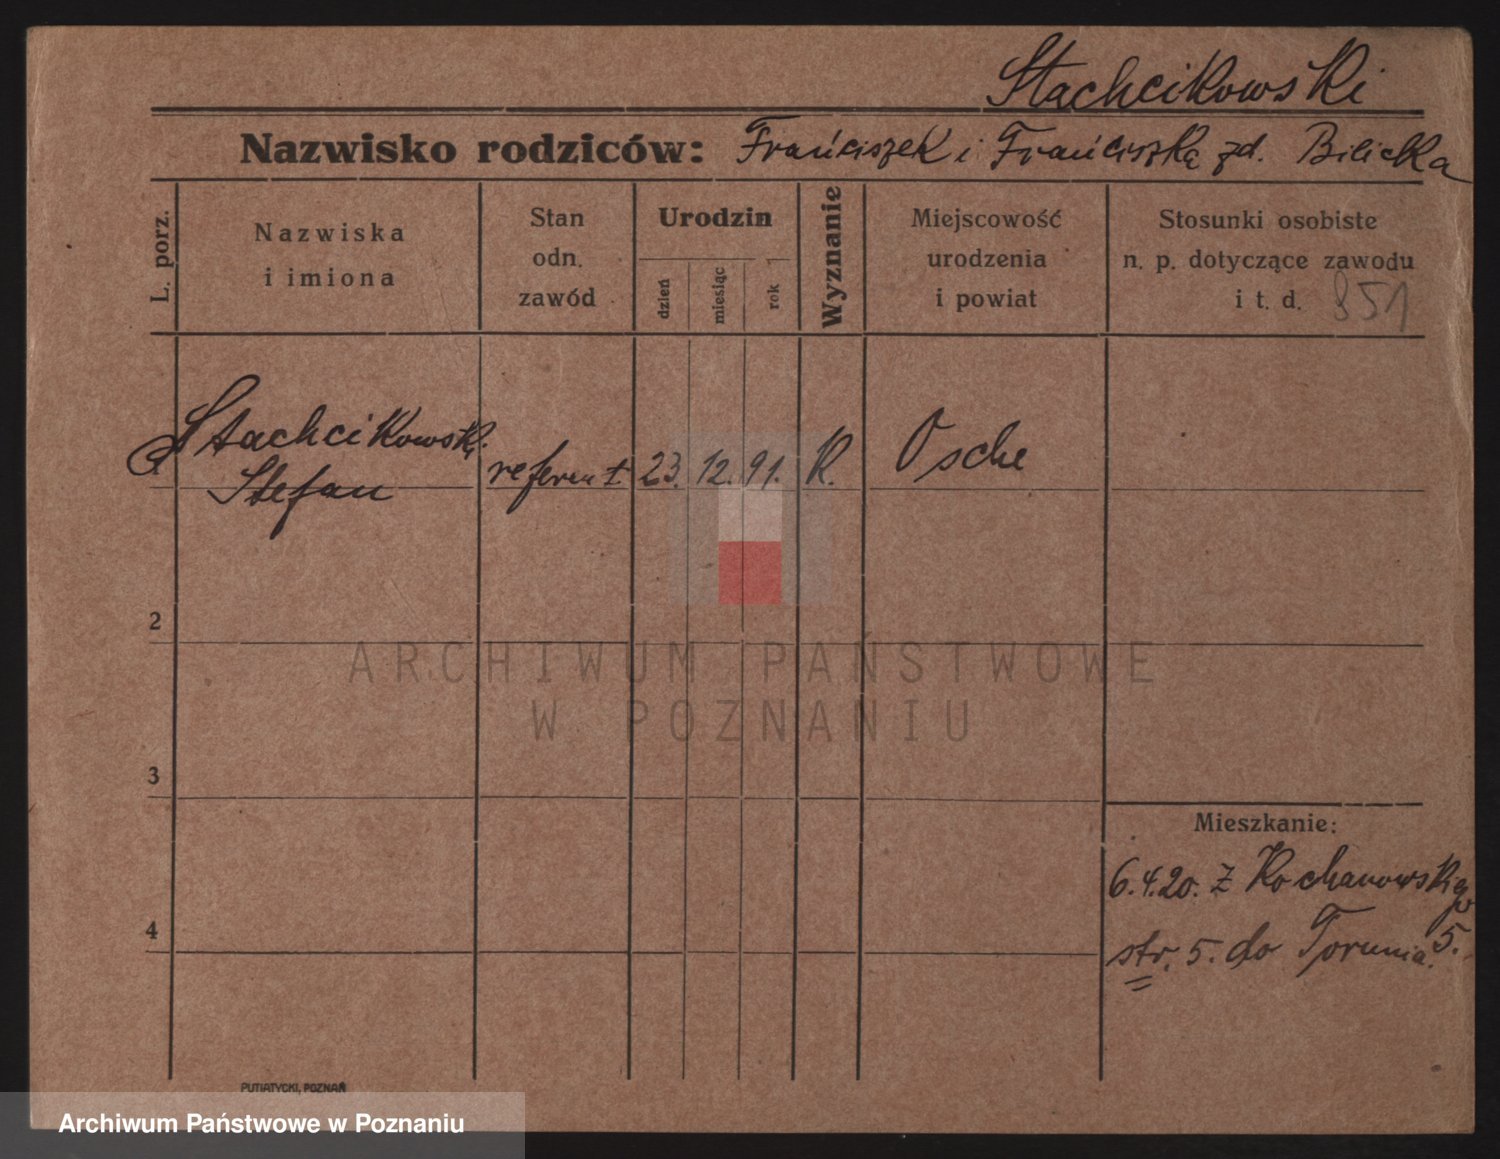 Stachcikowski
Nazwisko rodziców: Franciszek i Franciszka zd. Bilicka
L. porz.
Nazwiska
i imiona
Stan
odn.
zawód
Urodzin
dzień
miesiąc
rok
Wyznanie
Miejscowość
urodzenia
i powiat
Stosunki osobiste
n. p. dotyczące zawodu
i t. d. 851
Stachcikowski
Stefan
referent 23. 12. 91. K. Osche
2
3
4
Mieszkanie:
6.4.20. z Kochanowskiego
str. 5. do Torunia. 5.
PUTIATYCKI, POZNAŃ
ARCHIWUM PAŃSTWOWE
W POZNANIU
Archiwum Państwowe w Poznaniu